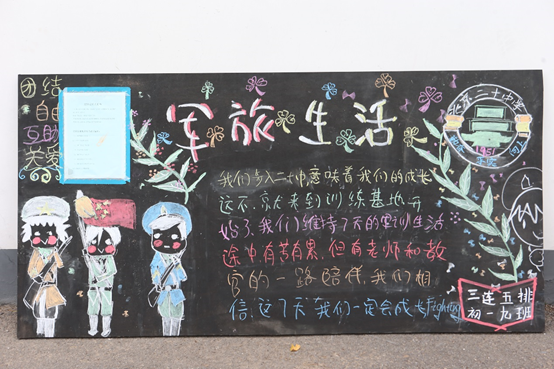 团结
自由
互助
关爱
军旅生活
北京二十中学
1951
我们步入二十中,意味着我们的成长
这不,京北来到训练基地开
始了,我们维持7天的军训生活
途中有苦有累,但有老师和教
官的一路陪伴,我们相
信,这7天我们一定会成长fighting
三连五排
初一九班